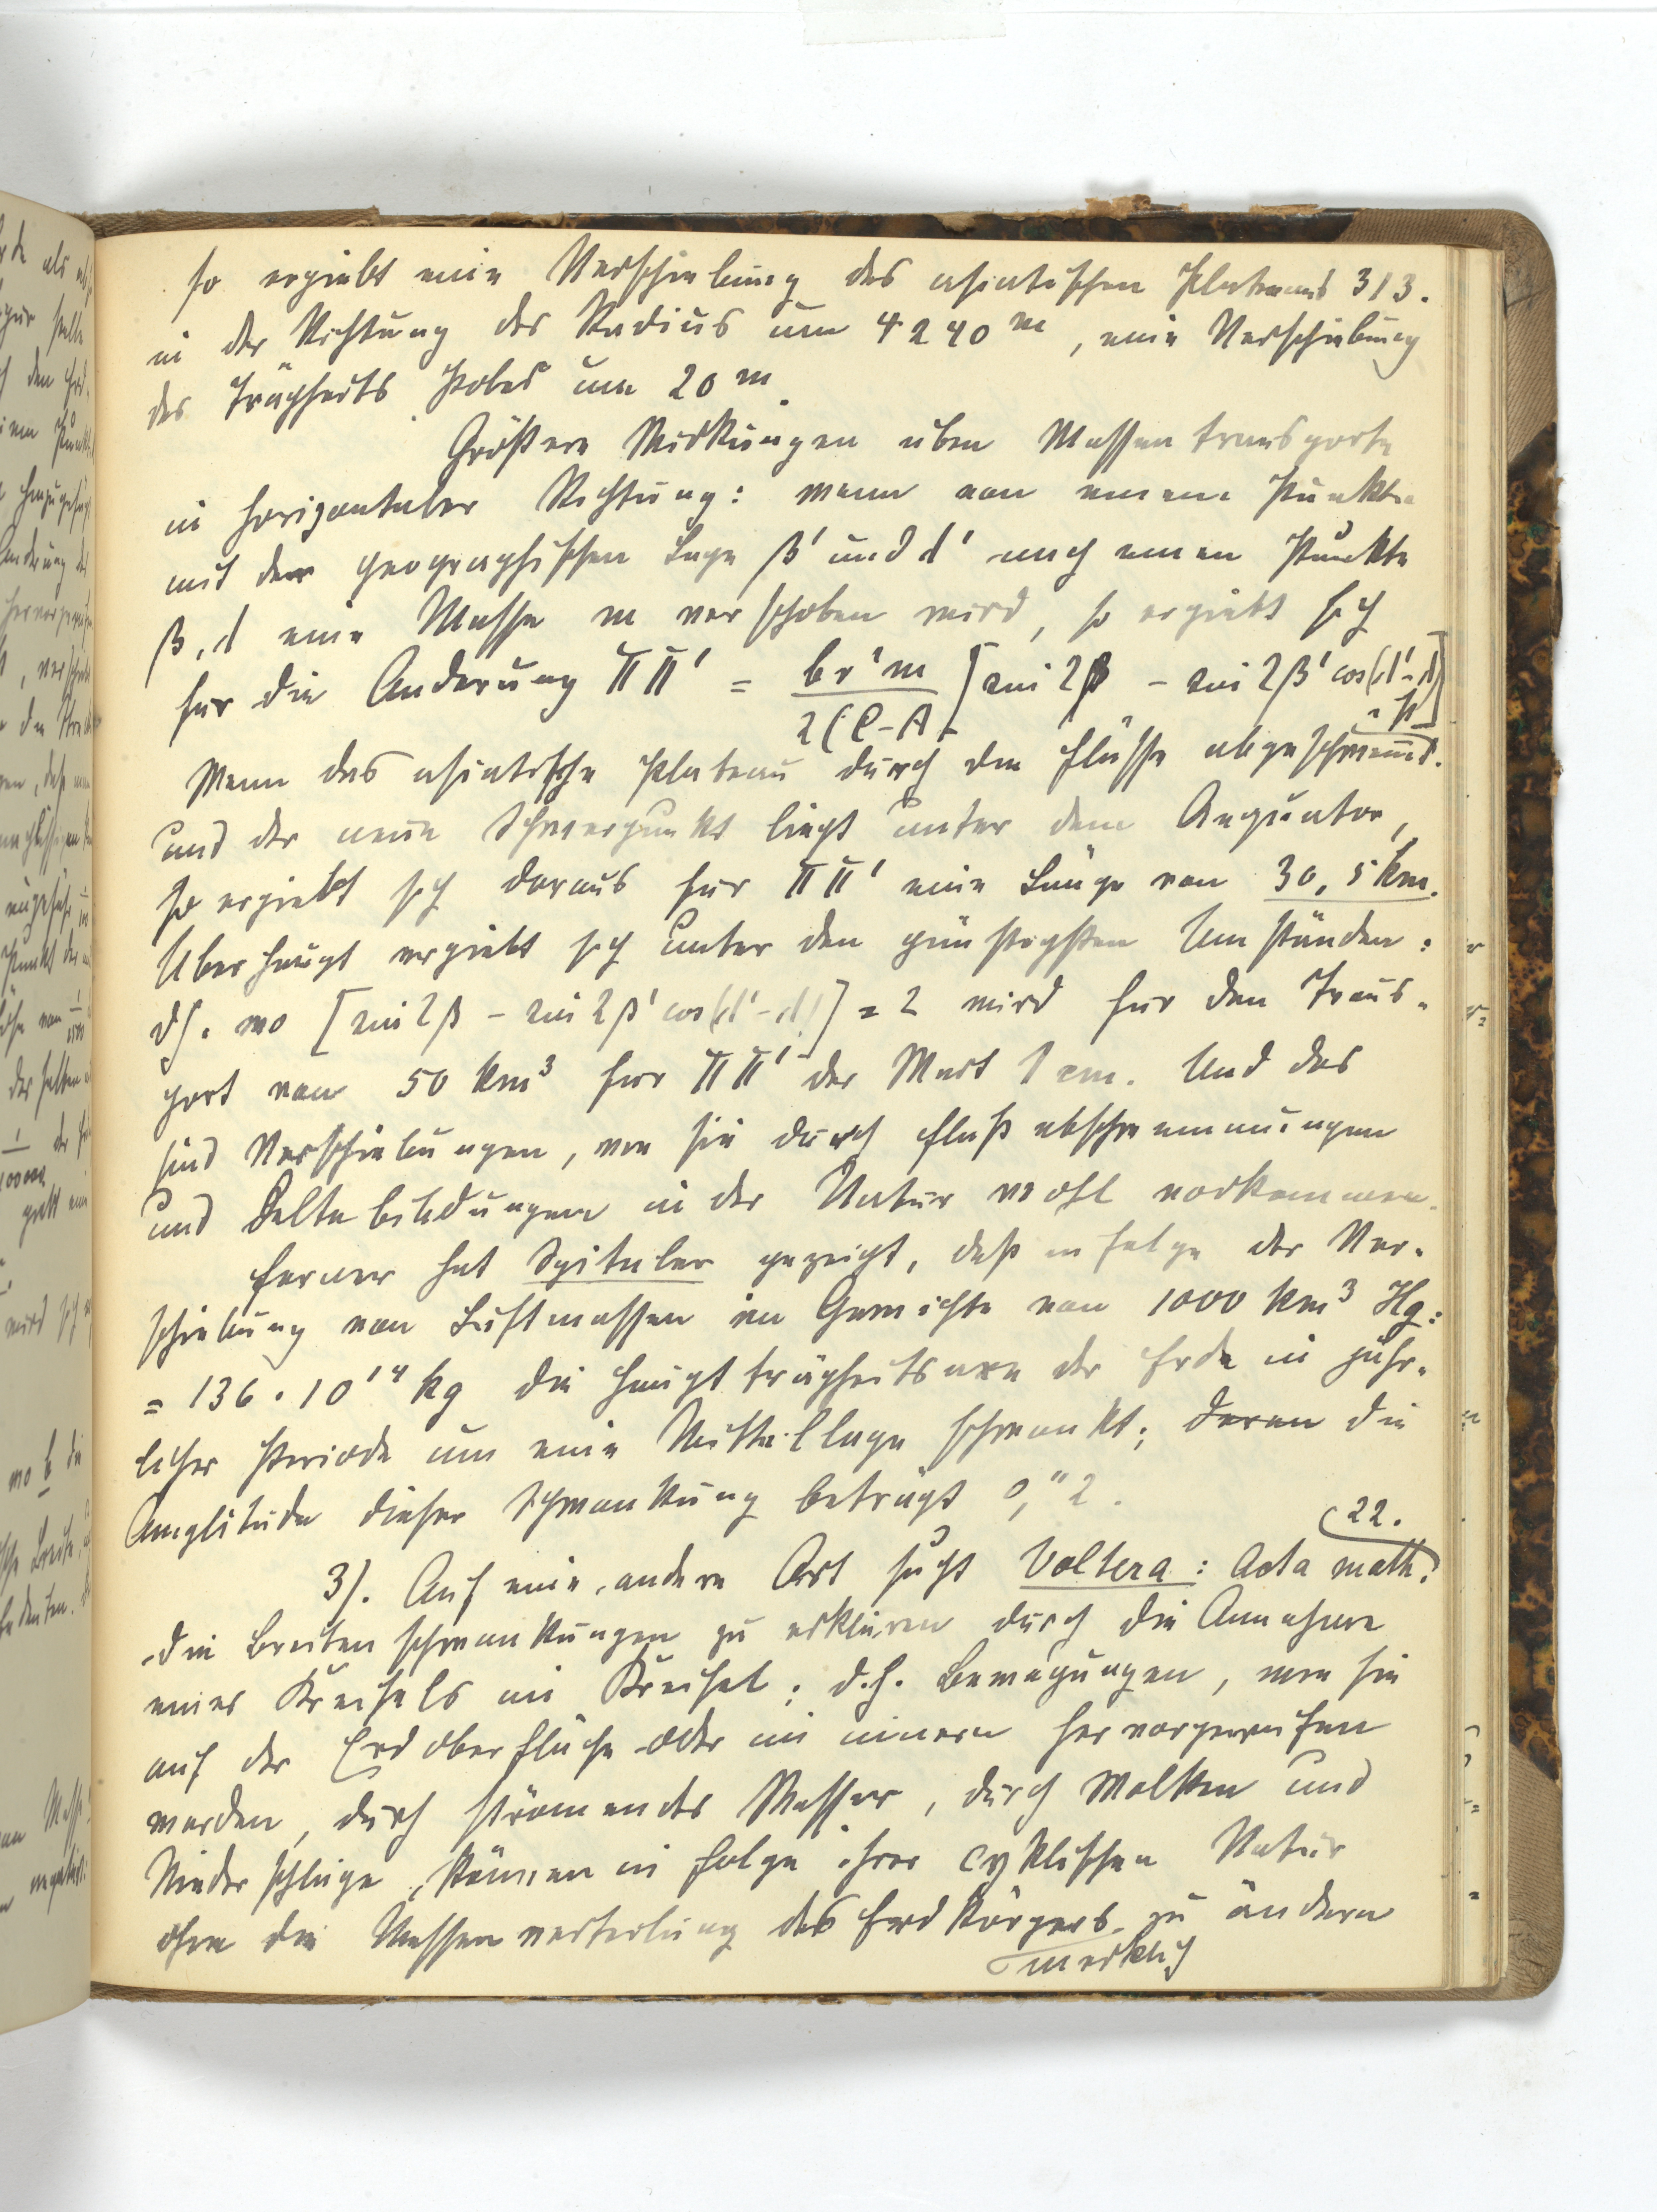 so ergiebt eine Verschiebung des asiatischen Plateaus 313.
in der Richtung des Radius um 4240 m, eine Verschiebung
des Trägheits Poles um 20 m.
Größere Wirkungen üben Massentransporte
in horizontaler Richtung: wenn von einem Punkte
mit der geographischen Lage β' und d' nach einen Punkte
β, d eine Masse m verschoben wird, so ergiebt sich
für die Anderung ΠΠ' = br'm / 2(C-A) [sin 2β - sin 2β' cos(d'-d)]
Wenn das asiatische Plateau durch die Flüsse abgeschwemmt
und der neue Schwerpunkt liegt unter dem Aequator,
so ergiebt sich daraus für ΠΠ' eine Länge von 30,5 km.
Uberhaupt ergiebt sich unter den günstigsten Umständen:
dh. wo [sin 2β - sin 2β' cos(d'-d)] = 2 wird für den Trans-
port von 50 km³ für ΠΠ' der Wert 1 cm. Und das
sind Verschiebungen, wie sie durch Flußabschwemmungen
und Deltabildungen in der Natur wohl vorkommen.
Ferner hat Spitaler gezeigt, daß infolge der Ver-
schiebung von Luftmassen im Gewichte von 1000 km³ Hg:
= 136 · 10¹⁴ kg die Hauptträgheitsaxe der Erde in jähr-
licher Periode um eine Mittellage schwankt; deren die
Amplitude dieser Schwankung beträgt 0,"2.
3). Auf eine andere Art sucht Voltera: Acta math. 22.
die Breitenschwankungen zu erklären durch die Annahme
eines Kreisels im Kreisel; d.h. Bewegungen, wie sie
auf der Erdoberfläche oder im innern hervorgerufen
werden, durch strömendes Wasser, durch Wolken und
Niederschläge, können in folge ihrer cyklischen Natur
ohne die Massenverteilung des Erdkörpers zu ändern
merklich